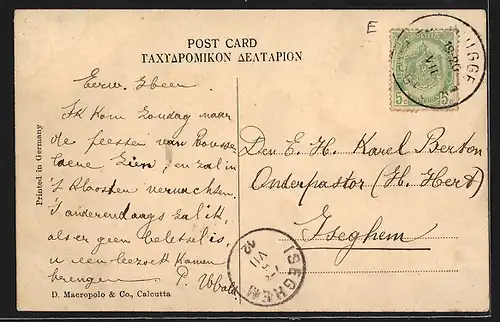 E
POST CARD
ΤΑΧΥΔΡΟΜΙΚΟΝ ΔΕΛΤΑΡΙΟΝ
Eerw. Heer
Ik kom Zondag naar
de feesten van Rousse
laere zien, en zal in
't klooster vernachten.
's anderendaags zal ik,
als er geen beletsel is,
u een bezoek komen
brengen P.
Den E. H. Karel Berton
Onderpastor (H. Hert)
Iseghem
BRUGGE
VII
5c 5c
ISEGHEM
VII
12
Printed in Germany
D. Macropolo & Co., Calcutta